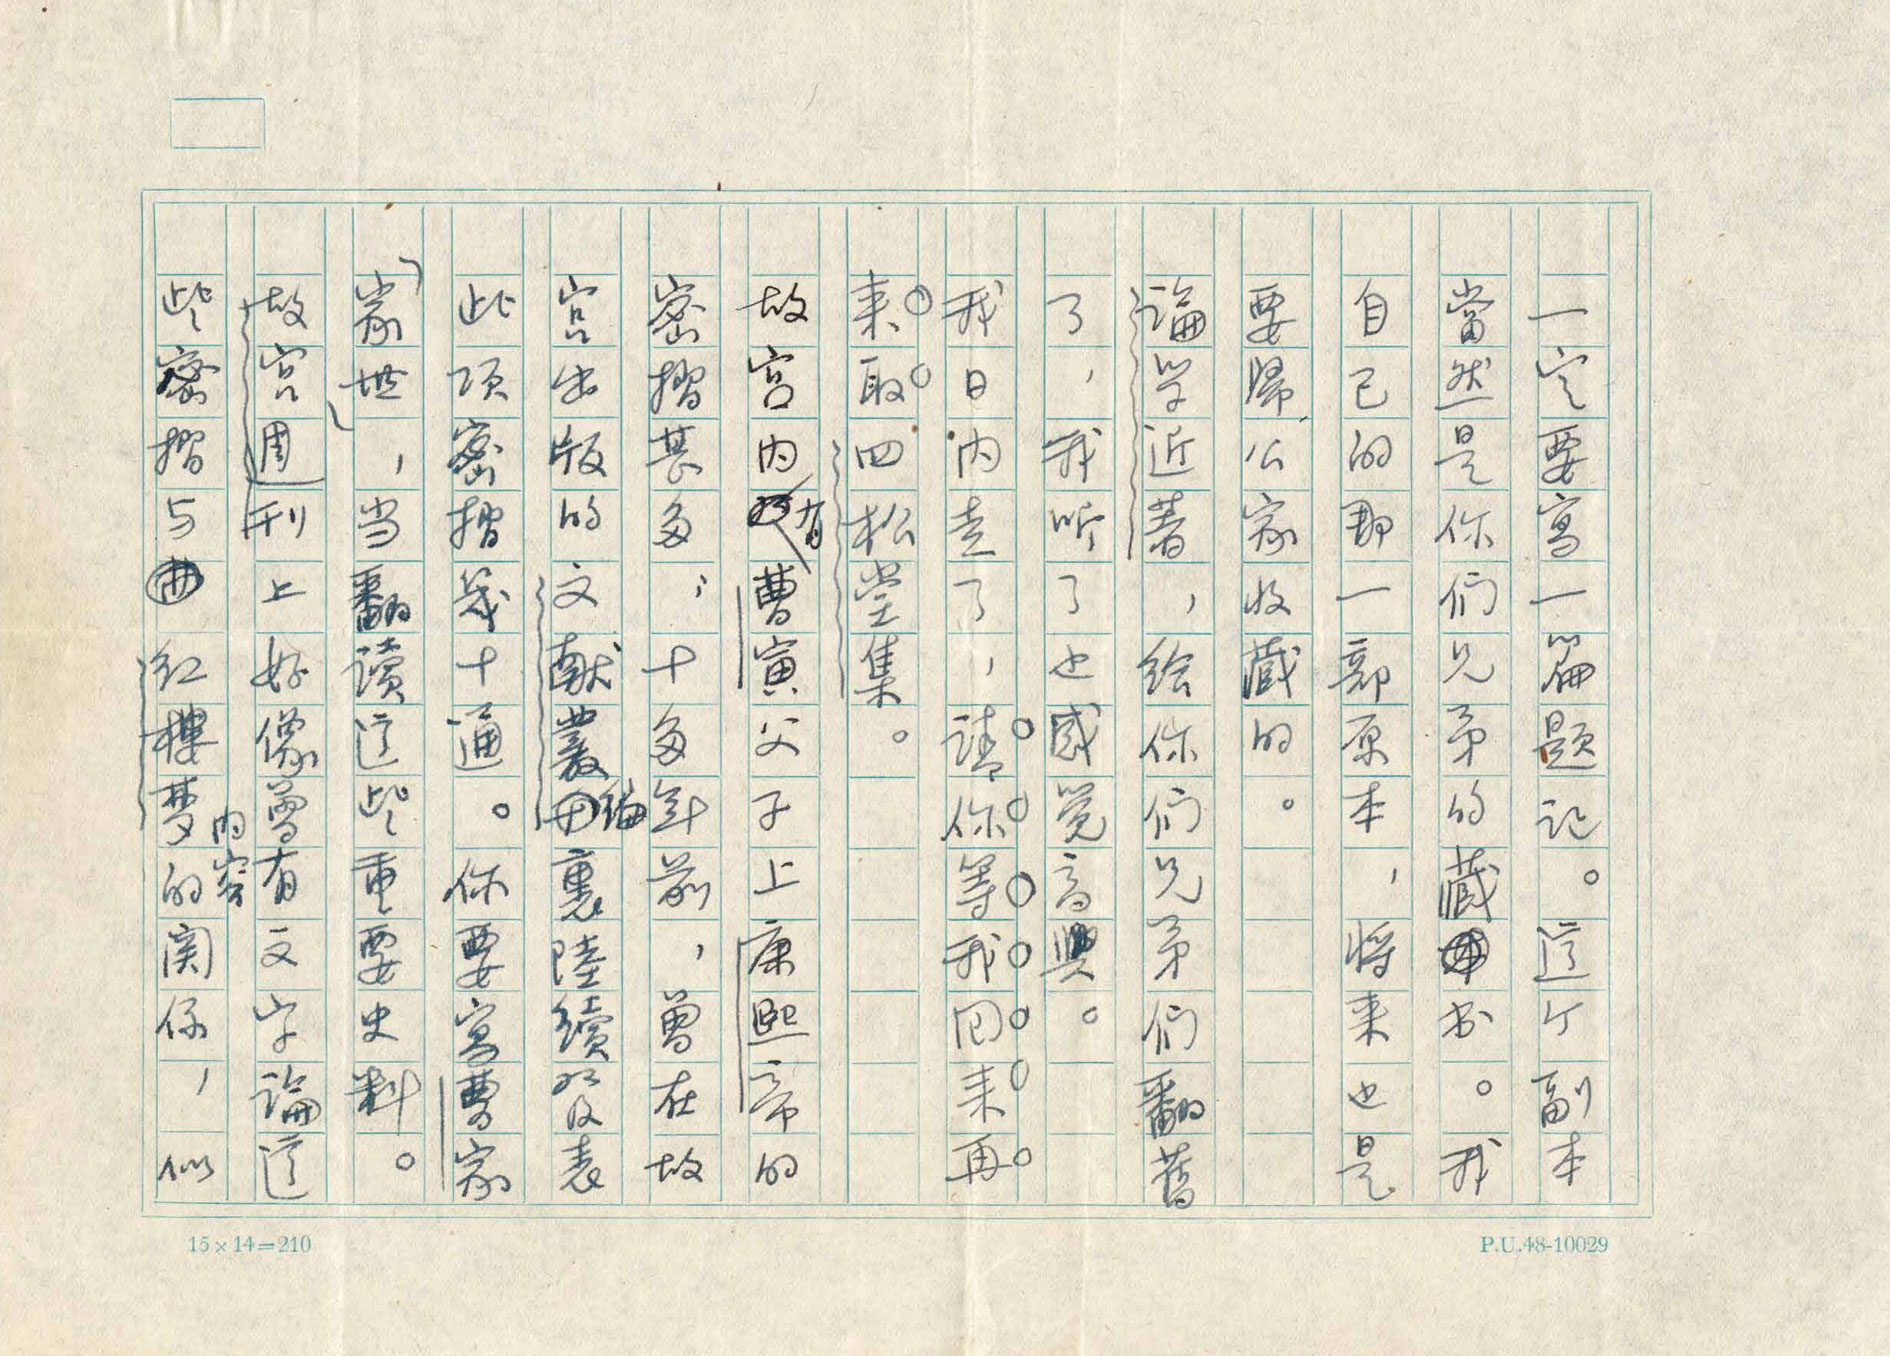 一定要寫一篇題記。這个副本
當然是你們兄弟的藏书。我
自己的那一部原本，將来也是
要歸公家收藏的。
論学近著，给你們兄弟們翻舊
了，我听了也感覺高興。
我日内走了，請你等我回来再
来取四松堂集。
故宫内有曹寅父子上康熙帝的
密摺甚多；十多年前，曾在故
宫出版的文献叢编裏陸續发表
此项密摺幾十通。你要寫曹家
家世，当翻读這些重要史料。
故宫周刊上好像曾有文字論這
些密摺与红樓梦内容的関係，似
15×14=210
P.U.48-10029